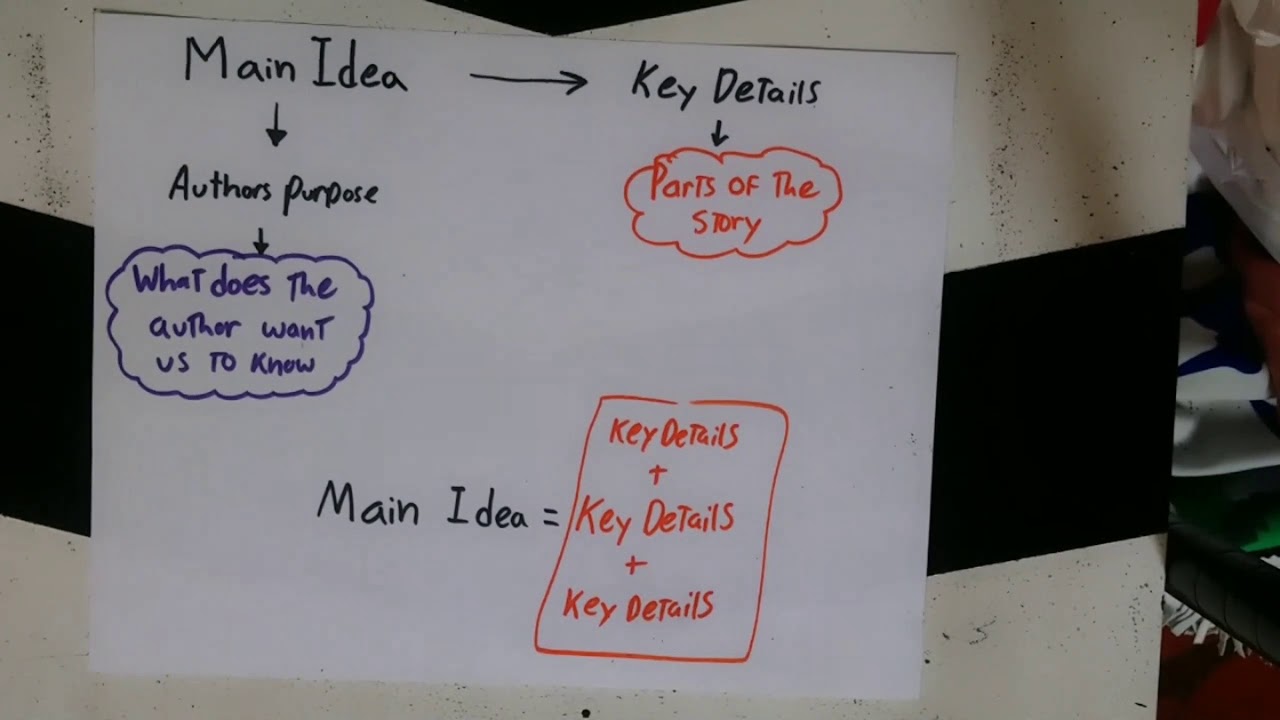 Main Idea
Key Details
Authors purpose
Parts of the
Story
What does the
author want
us to know
Key Details
+
Main Idea = Key Details
+
Key Details